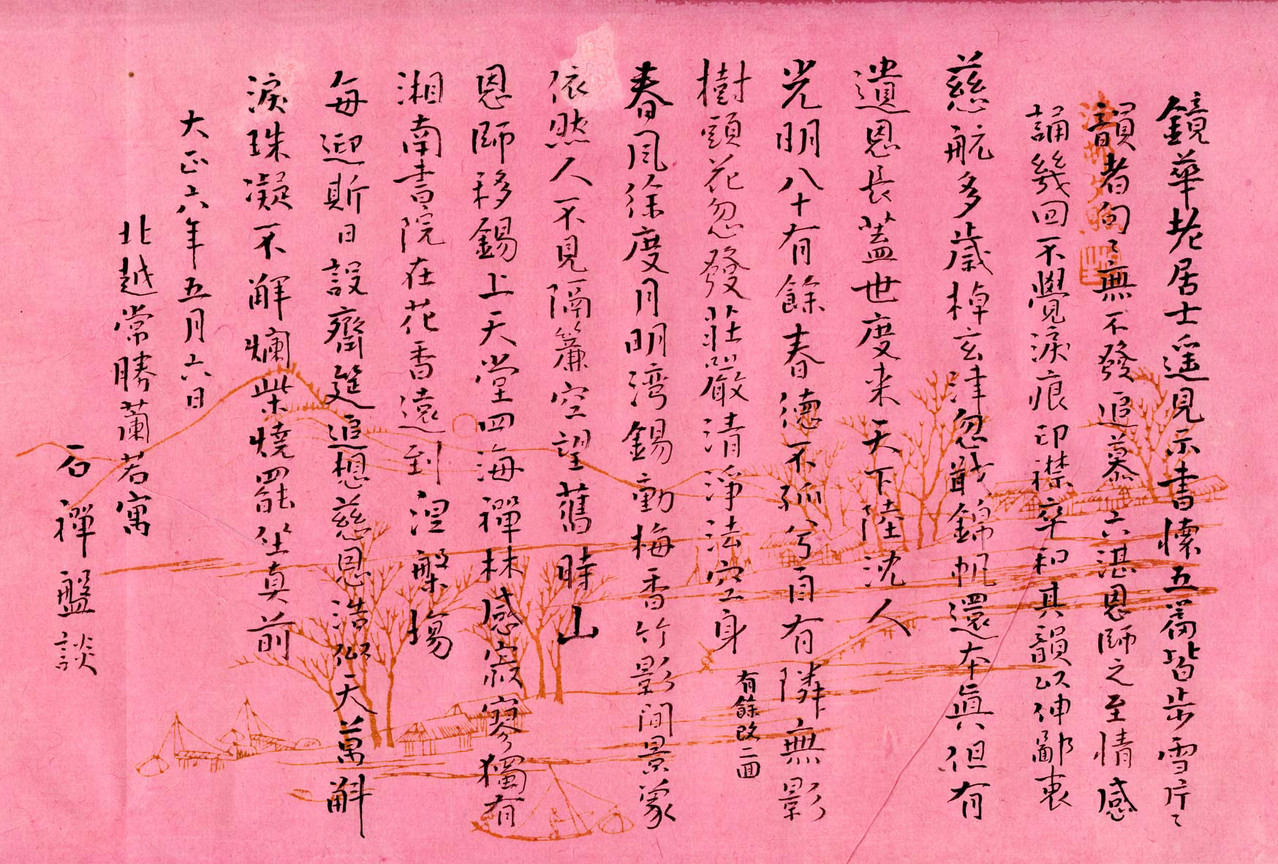 鏡華老居士遥見示書懷五篇皆步雪片〻
韻者句〻無不發追慕六湛恩師之至情感
誦幾回不覺淚痕印襟卒和其韻以伸鄙衷
慈航多歳棹玄津忽戢錦帆還本眞但有
遺恩長蓋世度来天下陸沈人
光明八十有餘春德不孤兮自有隣無影
樹頭花忽發莊嚴清淨法空身
有餘改二回
春風徐度月明湾錫動梅香竹影間景象
依然人不見隔簾空望舊時山
恩師移錫上天堂四海禪林感寂寥獨有
湘南書院在花香遠到涅槃場
每迎斯日設齋筵追想慈恩浩似天萬斛
淚珠凝不解爛柴燒罷坐真前
大正六年五月六日
北越常勝蘭若寓
石禪盤談